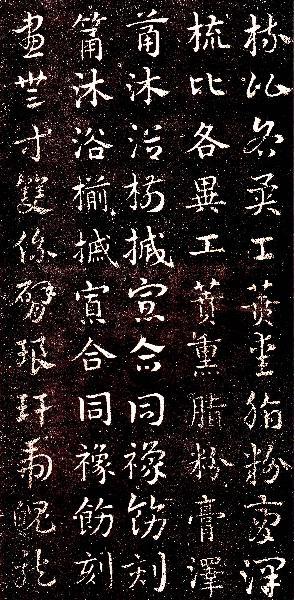 梳比各異工蕡熏脂粉膏澤
梳比各異工蕡熏脂粉膏澤
筩沐浴揃搣寡合同襐飭刻
筩沐浴揃搣寡合同襐飭刻
畫無等雙係臂琅玕虎魄龍